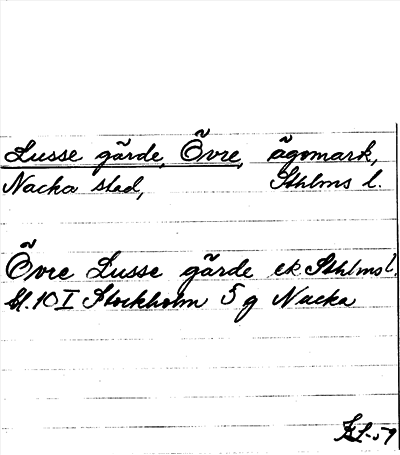 Lusse gärde, Övre, ägomark,
Nacka stad, Sthlms l.
Övre Lusse gärde ek Sthlms l.
bl. 10 I Stockholm 5 g Nacka